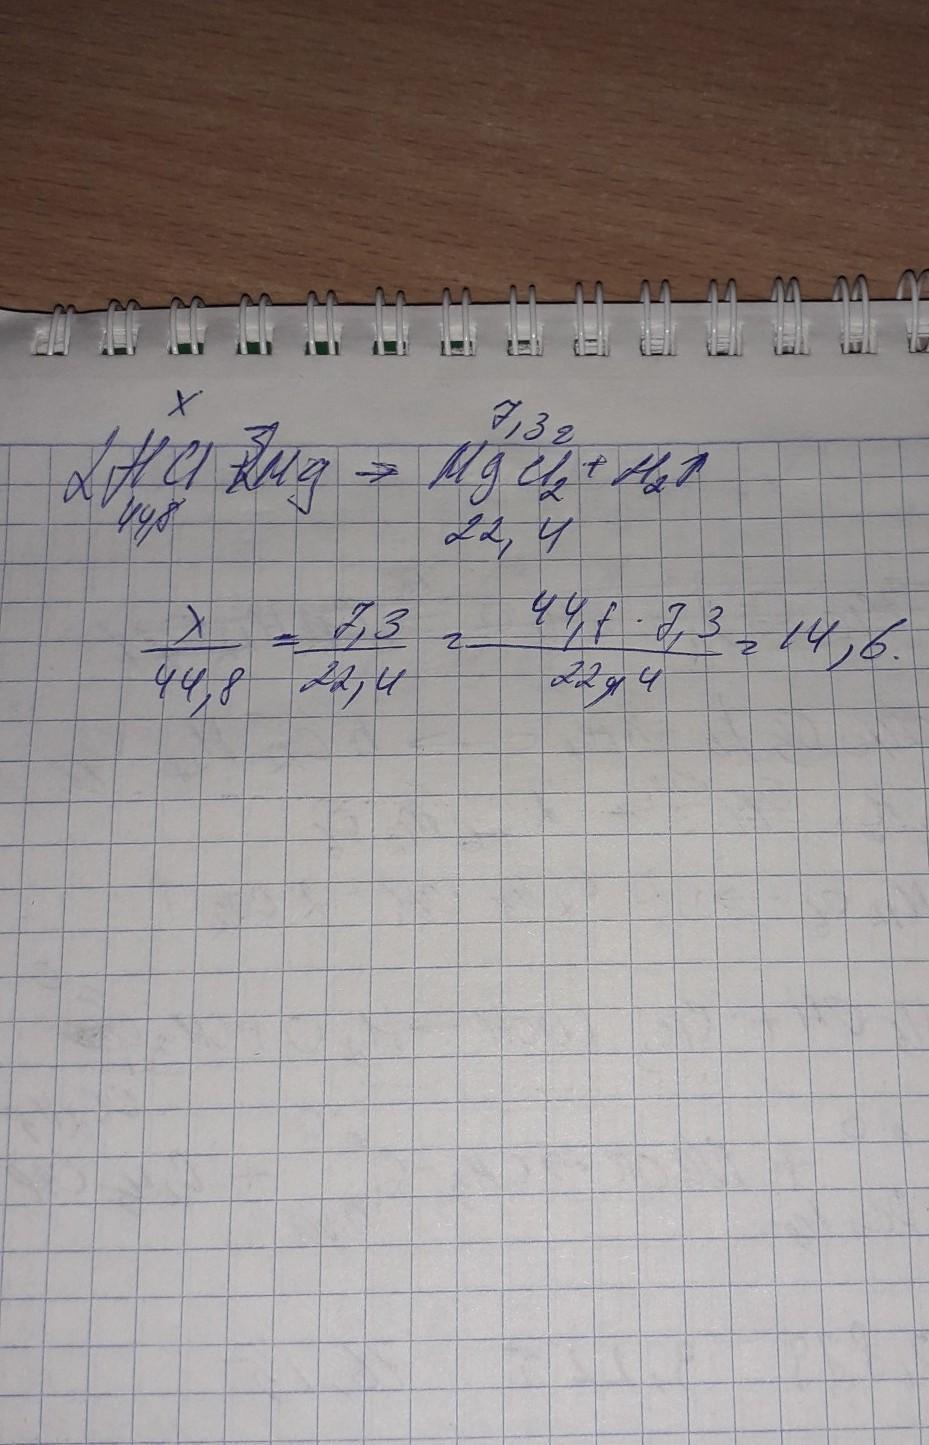 x 7,3г
2HCl + Mg → MgCl2 + H2↑
44,8 22,4
x/44,8 = 7,3/22,4 = 44,8 · 7,3/22,4 = 14,6.